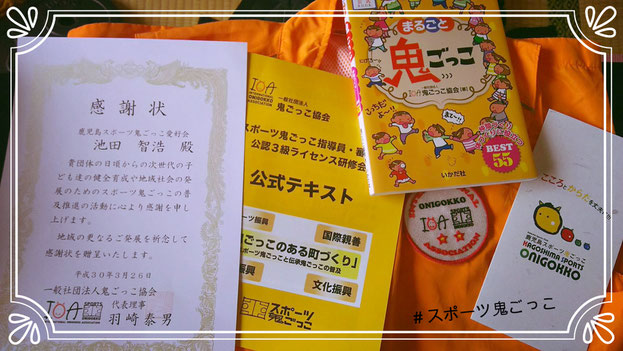 感謝状
鹿児島スポーツ鬼ごっこ愛好会
池田 智浩 殿
貴団体の日頃からの次世代の子
ども達の健全育成や地域社会の発
展のためのスポーツ鬼ごっこの普
及推進の活動に心より感謝を申し
上げます。
地域の更なるご発展を祈念して
感謝状を贈呈いたします。
平成30年3月26日
一般社団法人鬼ごっこ協会
代表理事
羽崎泰男
IOA
一般社団法人
鬼ごっこ協会
スポーツ鬼ごっこ指導員・審
公認3級ライセンス研修会
公式テキスト
ーツ振興
国際親善
鬼ごっこのある町づくり」
ーツ鬼ごっこと伝承鬼ごっこの普及
振興
文化振興
スポーツ
鬼ごっこ
まるごと
鬼ごっこ
一般社団法人
IOA 鬼ごっこ協会
BEST
55
いかだ社
ONIGOKKO
IOA
ASSOCIATION
こころとからだを
鹿児島スポーツ鬼ごっこ
KAGOSHIMA SPORTS
ONIGOKKO
#スポーツ鬼ごっこ